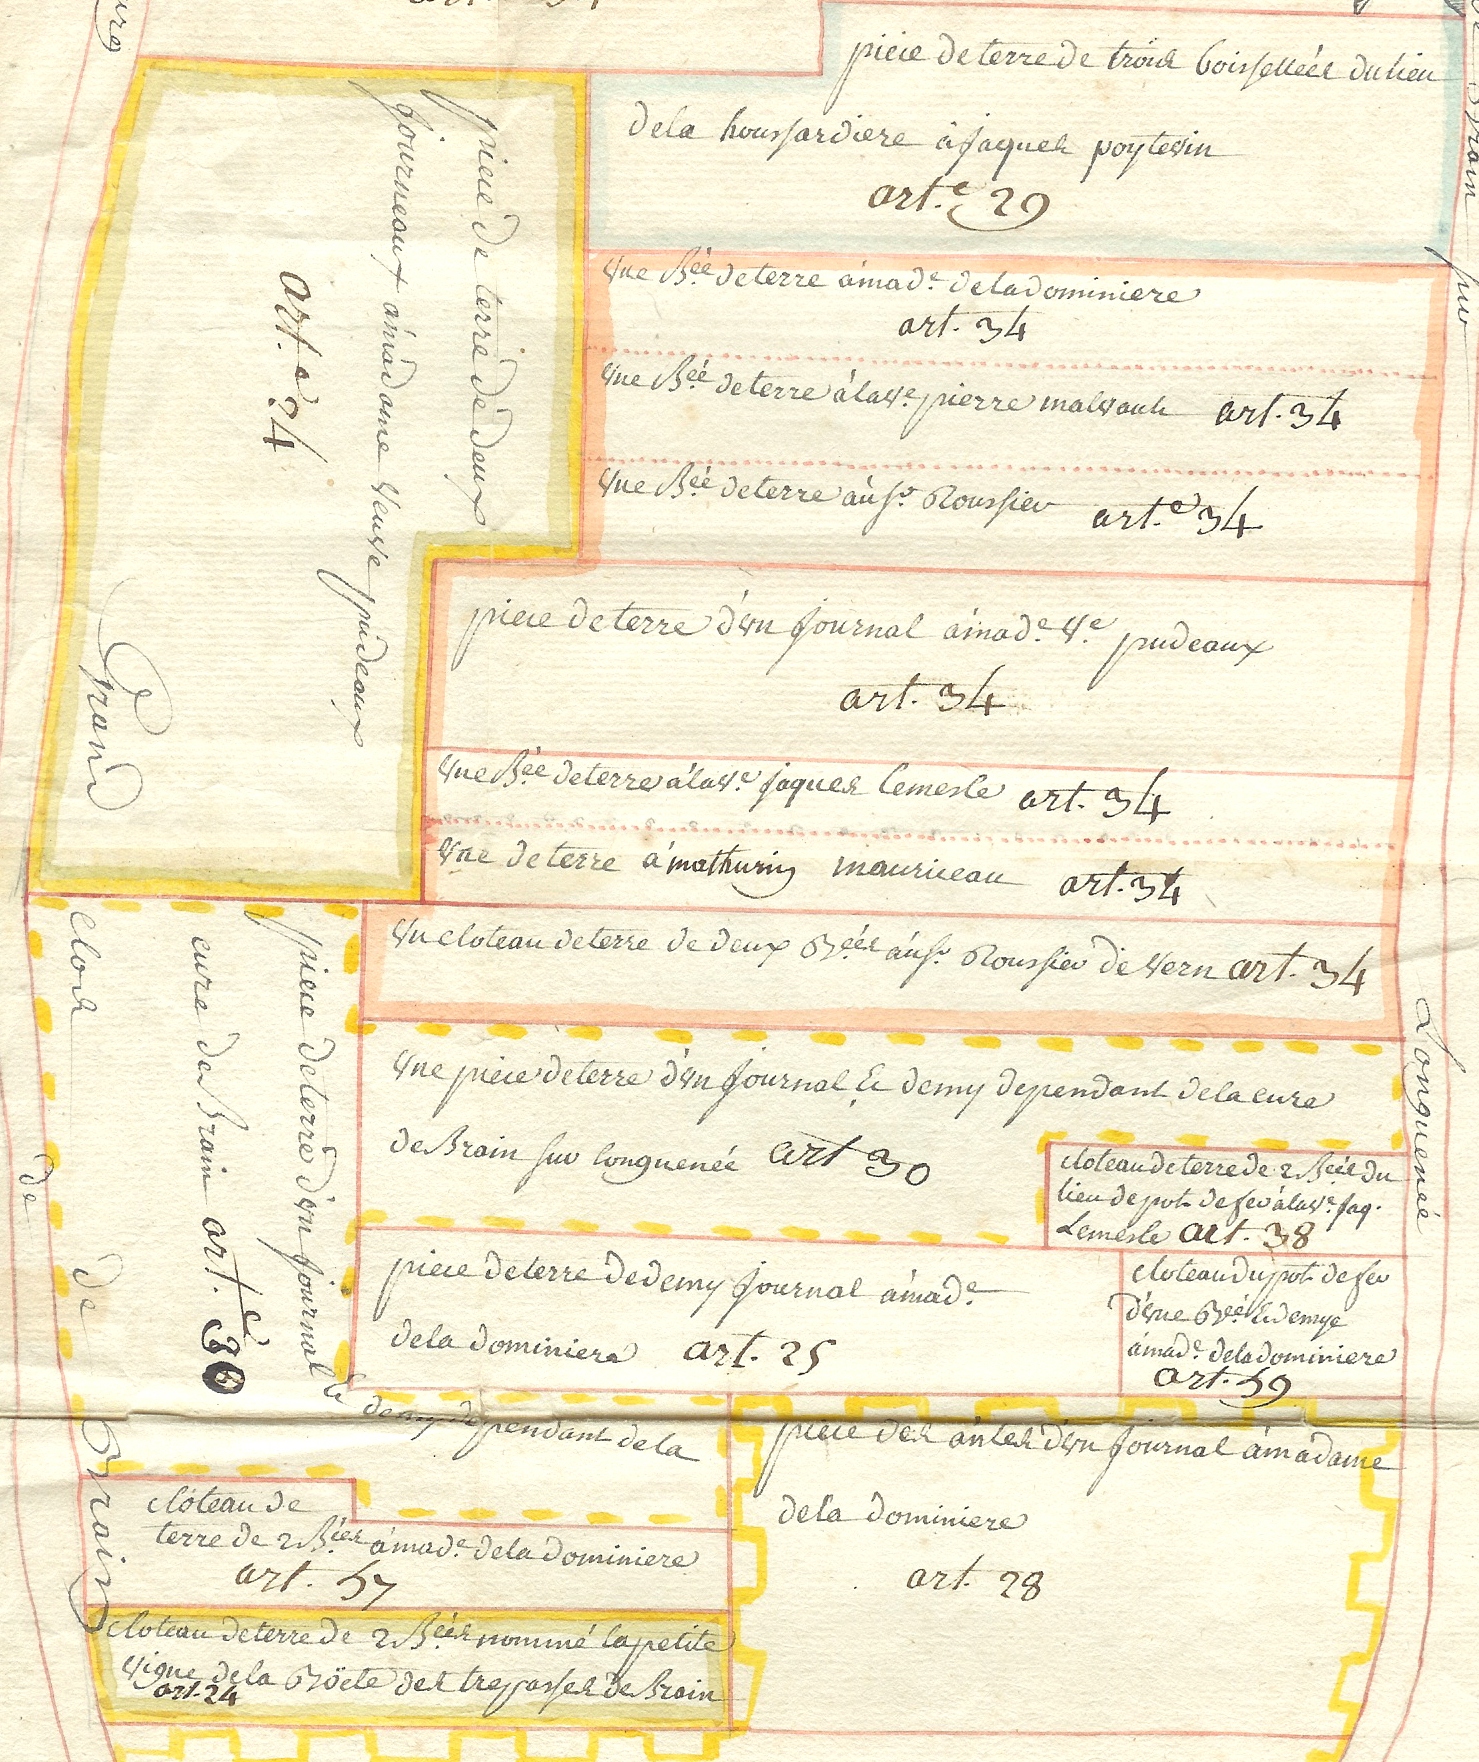 pièce de terre de trois boisselléés du lieu
de la houssardiere à jaques poytevin
art.e 29
pièce de terre de deux
journeaux à madame veuve pudeaux
art.e 24
Grand
Vne Béé de terre à mad.e de la dominiere
art. 34
Vne Béé de terre à la ve. pierre malvault art. 34
Vne Béé de terre au sr. Roussier art.e 34
pièce de terre d'vn journal à mad.e Ve. pudeaux
art. 34
Vne Béé de terre à la ve. jaques Lemesle art. 34
Vne de terre à mathurin mauriceau art. 34
Vn cloteau de terre de deux Béés au sr. Roussier de Vern art. 34
clos
de
de
Brain
pièce de terre d'vn journal &
demy dependant de la
cure de Brain art.e 30
Vne pièce de terre d'vn journal & demy dependant de la cure
de Brain sur longuenéé art 30
cloteau de terre de 2 Béés du
lieu de pot de fer à la ve. jaq.
Lemesle art. 38
pièce de terre de demy journal à mad.e
de la dominiere art. 25
cloteau du pot de fer
d'vne Béé & demye
à mad.e de la dominiere
art. 59
sur
Longuenéé
cloteau de
terre de 2 Béés à mad.e de la dominiere
art. 57
cloteau de terre de 2 Béés nommé la petite
vigne de la Böete des trepassés de Brain
art. 24
pièce des à madame
d'vn journal
de la dominiere
art. 28